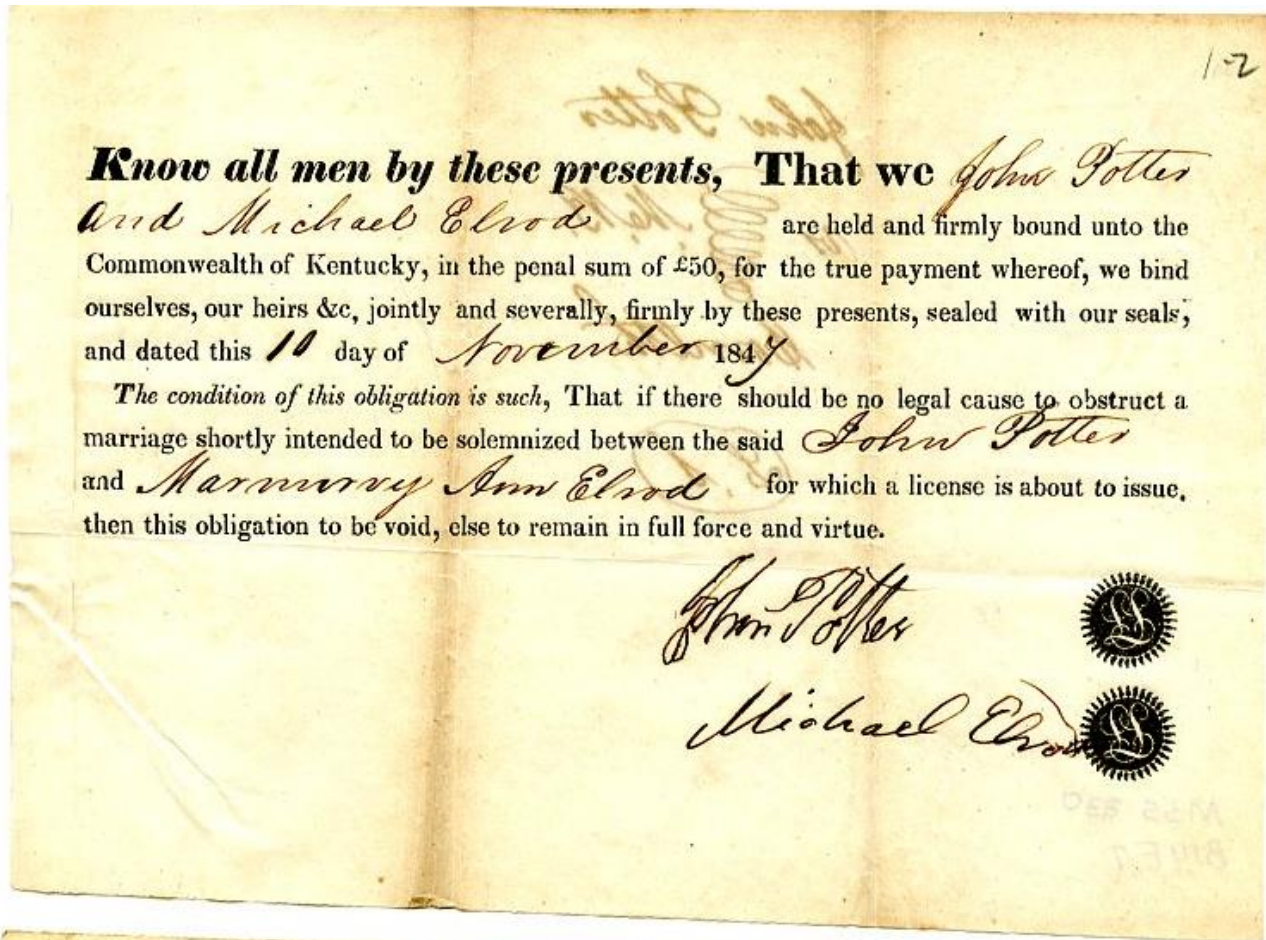 1-2
Know all men by these presents, That we John Potter
and Michael Elrod are held and firmly bound unto the
Commonwealth of Kentucky, in the penal sum of £50, for the true payment whereof, we bind
ourselves, our heirs &c, jointly and severally, firmly by these presents, sealed with our seals,
and dated this 10 day of November 1847
The condition of this obligation is such, That if there should be no legal cause to obstruct a
marriage shortly intended to be solemnized between the said John Potter
and Marmurvy Ann Elrod for which a license is about to issue,
then this obligation to be void, else to remain in full force and virtue.
John Potter
Michael Elrod